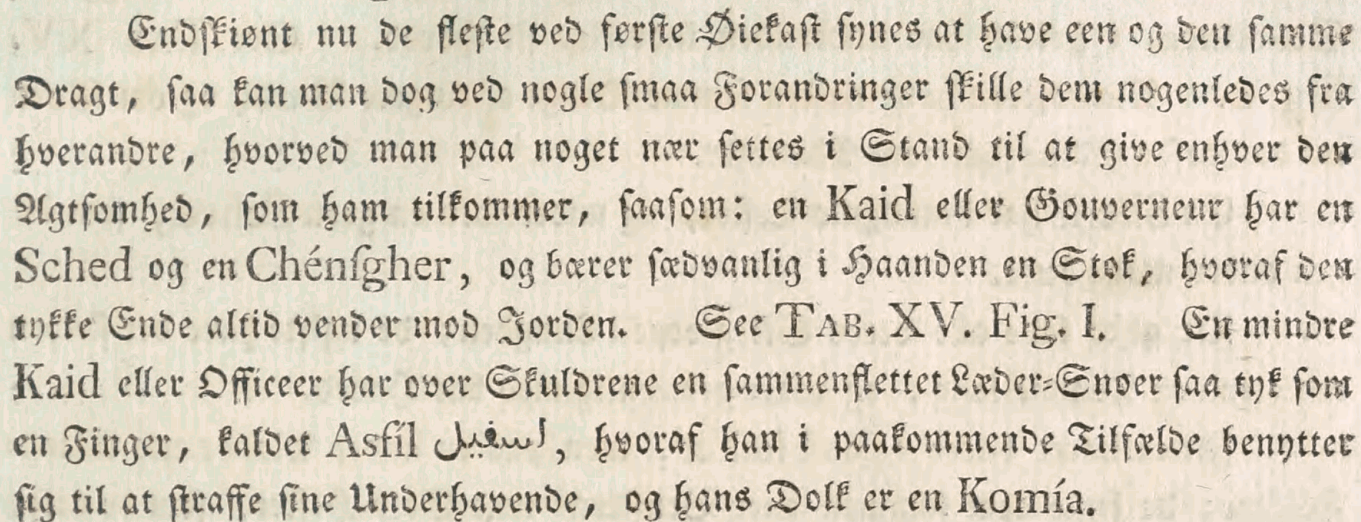 Endſkiønt nu de fleſte ved førſte Øiekaſt ſynes at have een og den ſamme
Dragt, ſaa kan man dog ved nogle ſmaa Forandringer ſkille dem nogenledes fra
hverandre, hvorved man paa noget nær ſettes i Stand til at give enhver den
Agtſomhed, ſom ham tilkommer, ſaaſom: en Kaid eller Gouverneur har en
Sched og en Chénſgher, og bærer ſædvanlig i Haanden en Stok, hvoraf den
tykke Ende altid vender mod Jorden. See TAB. XV. Fig. I. En mindre
Kaid eller Officeer har over Skuldrene en ſammenflettet Læder-Snoer ſaa tyk ſom
en Finger, kaldet Asfíl, hvoraf han i paakommende Tilfælde benytter
ſig til at ſtraffe ſine Underhavende, og hans Dolk er en Komía.